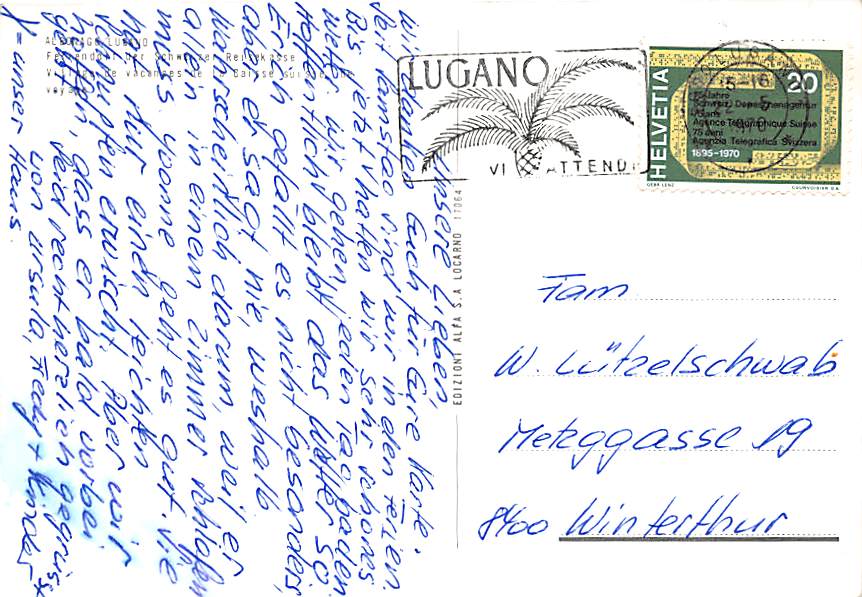 ALBONAGO LUGANO
Feriendorf der Schweizer Reisekasse
Village de vacances de la Caisse suisse de
voyage
EDIZIONI ALFA S.A LOCARNO 17064
LUGANO
VI ATTENDE
HELVETIA
20
75 Jahre
Schweiz. Depeschenagentur
75 ans
Agence Télégraphique Suisse
75 anni
Agenzia Telegrafica Svizzera
1895-1970
COURVOISIER S.A.
Unsere Lieben,
wir danken Euch für Eure Karte.
Seit Samstag sind wir in den Ferien.
Bis jetzt hatten wir sehr schönes
Wetter. Wir gehen jeden Tag baden.
Hoffentlich bleibt das Wetter so.
Erich gefällt es nicht besonders,
aber er sagt nie, weshalb
warscheinlich darum, weil er
allein in einem Zimmer schlafen
muss. Yvonne geht es gut. Sie
hat nur einen leichten
Schnupfen erwischt. Aber wir
hoffen dass er bald vorbei
geht. Seid recht herzlich gegrüsst
von Ursula, + Kinder
X = unser Haus.
Fam
W. Lützelschwab
Metzggasse 19
8400 Winterthur